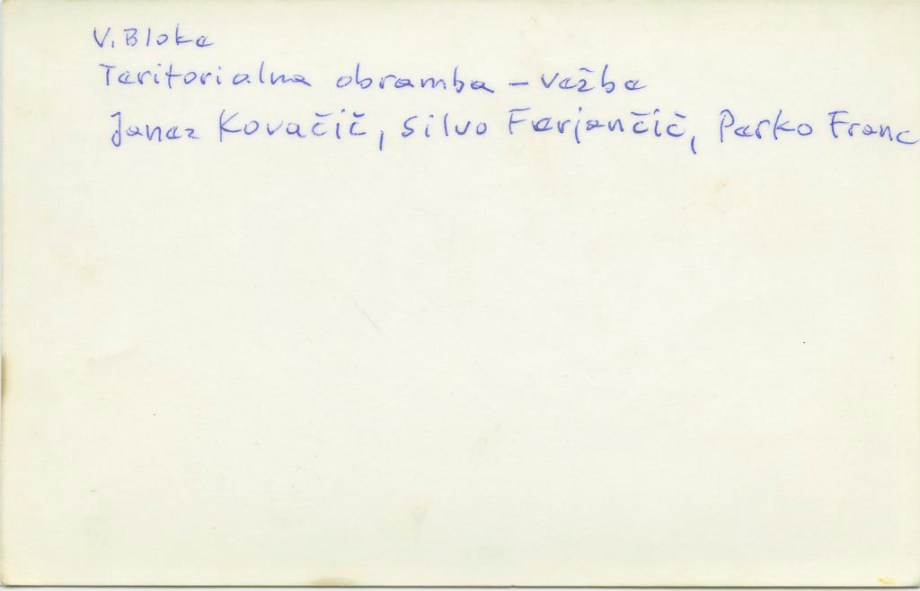 V. Bloke
Teritorialna obramba - vežbe
Janez Kovačič, Silvo Ferjančič, Perko Franc